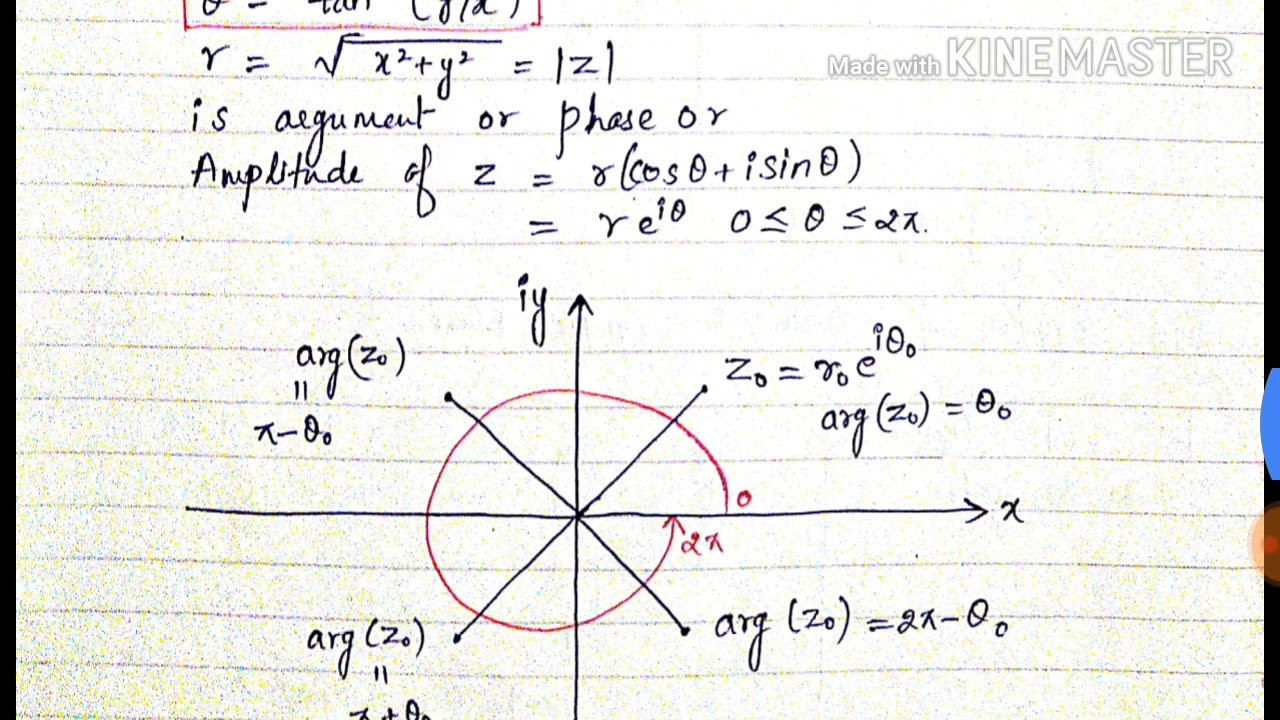 θ = tan (y/x)
r = √x²+y² = |z|
Made with KINEMASTER
is argument or phase or
Amplitude of z = r(cosθ + isinθ)
= re^iθ 0 ≤ θ ≤ 2π.
iy
arg(z₀)
=
π-θ₀
z₀ = r₀e^iθ₀
arg(z₀) = θ₀
0
x
2π
arg(z₀) = 2π-θ₀
arg(z₀)
=
π+θ₀